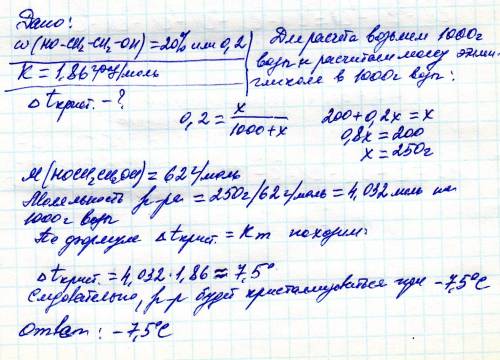 Дано:
ω(HO-CH₂-CH₂-OH)=20% или 0,2
K = 1,86 град/моль
Δtкрист. - ?
Для расчета возьмем 1000г
воды и рассчитаем массу этилен-
гликоля в 1000г воды:
0,2 = x/(1000+x)
200+0,2x = x
0,8x = 200
x = 250г
M(HOCH₂CH₂OH) = 62 г/моль
Моляльность р-ра = 250г/62 г/моль = 4,032 моль на
1000г воды
По формуле Δtкрист. = Km находим:
Δtкрист. = 4,032·1,86 ≈ 7,5°
Следовательно, р-р будет кристаллизоваться при -7,5°C
Ответ: -7,5°C